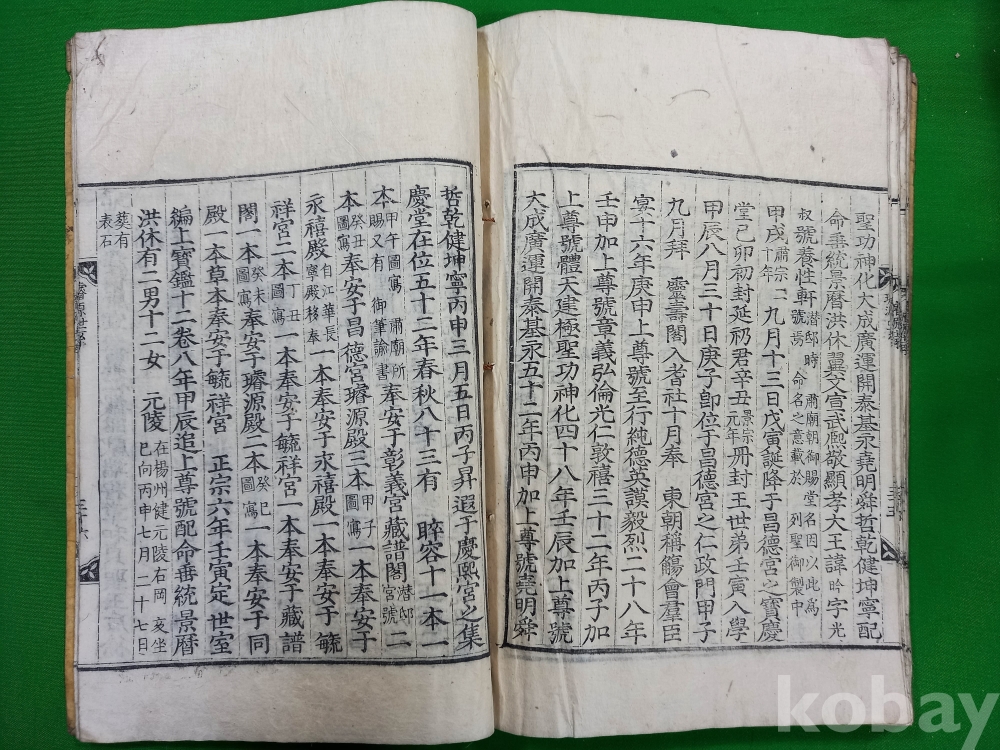 聖功神化大成廣運開泰基永堯明舜哲乾健坤寧配
命垂統景曆洪休翼文宣武熙敬顯孝大王諱昑字光
叔號養性軒潛邸時 肅廟朝御賜堂名因以此爲號焉 命名之意載於 列聖御製中
甲戌肅宗二十年九月十三日戊寅誕降于昌德宮之寶慶
堂己卯初封延礽君辛丑景宗元年冊封王世弟壬寅入學
甲辰八月三十日庚子卽位于昌德宮之仁政門甲子
九月拜 靈壽閣入耆社十月奉 東朝稱觴會羣臣
宴十六年庚申上尊號至行純德英謨毅烈二十八年
壬申加上尊號章義弘倫光仁敦禧三十二年丙子加
上尊號體天建極聖功神化四十八年壬辰加上尊號
大成廣運開泰基永五十二年丙申加上尊號堯明舜
哲乾健坤寧丙申三月五日丙子昇遐于慶熙宮之集
慶堂在位五十二年春秋八十三有 睟容十一本一
本甲午圖寫 肅廟所賜又有 御筆諭書奉安于彰義宮藏譜閣潛邸宮號二
本癸丑圖寫奉安于昌德宮璿源殿三本甲子圖寫一本奉安于
永禧殿自江華長寧殿移奉一本奉安于永禧殿一本奉安于毓
祥宮二本丁丑圖寫一本奉安于毓祥宮一本奉安于藏譜
閣一本癸未圖寫奉安于璿源殿二本癸巳圖寫一本奉安于同
殿一本草本奉安于毓祥宮 正宗六年壬寅定世室
編上寶鑑十二卷八年甲辰追上尊號配命垂統景曆
洪休有二男十二女 元陵在楊州健元陵右岡亥坐巳向丙申七月二十七日
葬有表石
kobay